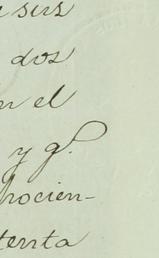 a sus
dos
en el
y g.
hocien-
tenta